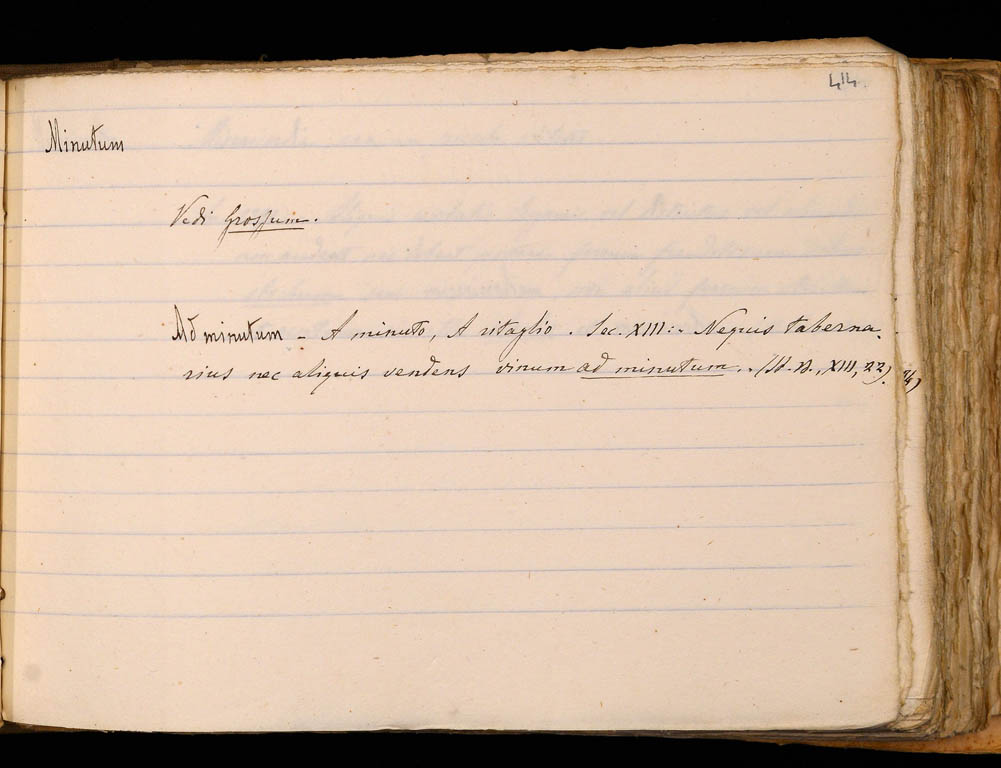 44.
Minutum
Vedi Grossum.
Ad minutum - A minuto, A ritaglio. Sec. XIII: - Nequis taberna-
rius nec aliquis vendens vinum ad minutum.. (St. B., XIII, 22).